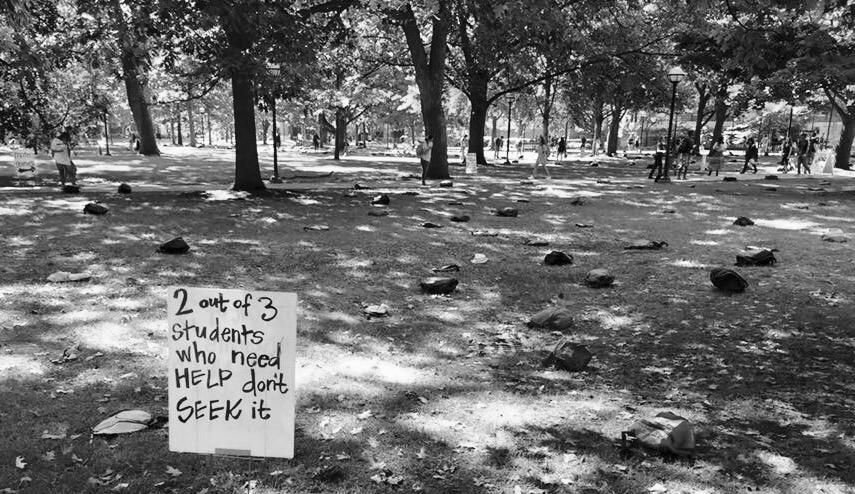 2 out of 3
students
who need
HELP don't
SEEK it